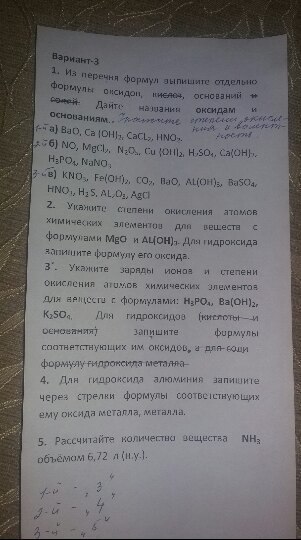 Вариант-3
1. Из перечня формул выпишите отдельно
формулы оксидов, кислот, оснований и
солей. Дайте названия оксидам и
основаниям. укажите степени окисле-
ния и валент-
ность
1-й а) BaO, Ca (OH)₂, CaCL₂, HNO₃.
2-й б) NO, MgCl₂, N₂O₅, Cu (OH)₂, H₂SO₄, Ca(OH)₂,
H₃PO₄, NaNO₃
3-й в) KNO₃, Fe(OH)₂, CO₂, BaO, AL(OH)₃, BaSO₄,
HNO₃, H₂S, AL₂O₃, AgCl
2. Укажите степени окисления атомов
химических элементов для веществ с
формулами MgO и AL(OH)₃. Для гидроксида
запишите формулу его оксида.
3*. Укажите заряды ионов и степени
окисления атомов химических элементов
для веществ с формулами: H₃PO₄, Ba(OH)₂,
K₂SO₄. Для гидроксидов (кислоты и
основания) запишите формулы
соответствующих им оксидов, а для соли
формулу гидроксида металла
4. Для гидроксида алюминия запишите
через стрелки формулы соответствующих
ему оксида металла, металла.
5. Рассчитайте количество вещества NH₃
объёмом 6,72 л (н.у.).
1-й - „3“
2-й - „4“
3-й - „5“